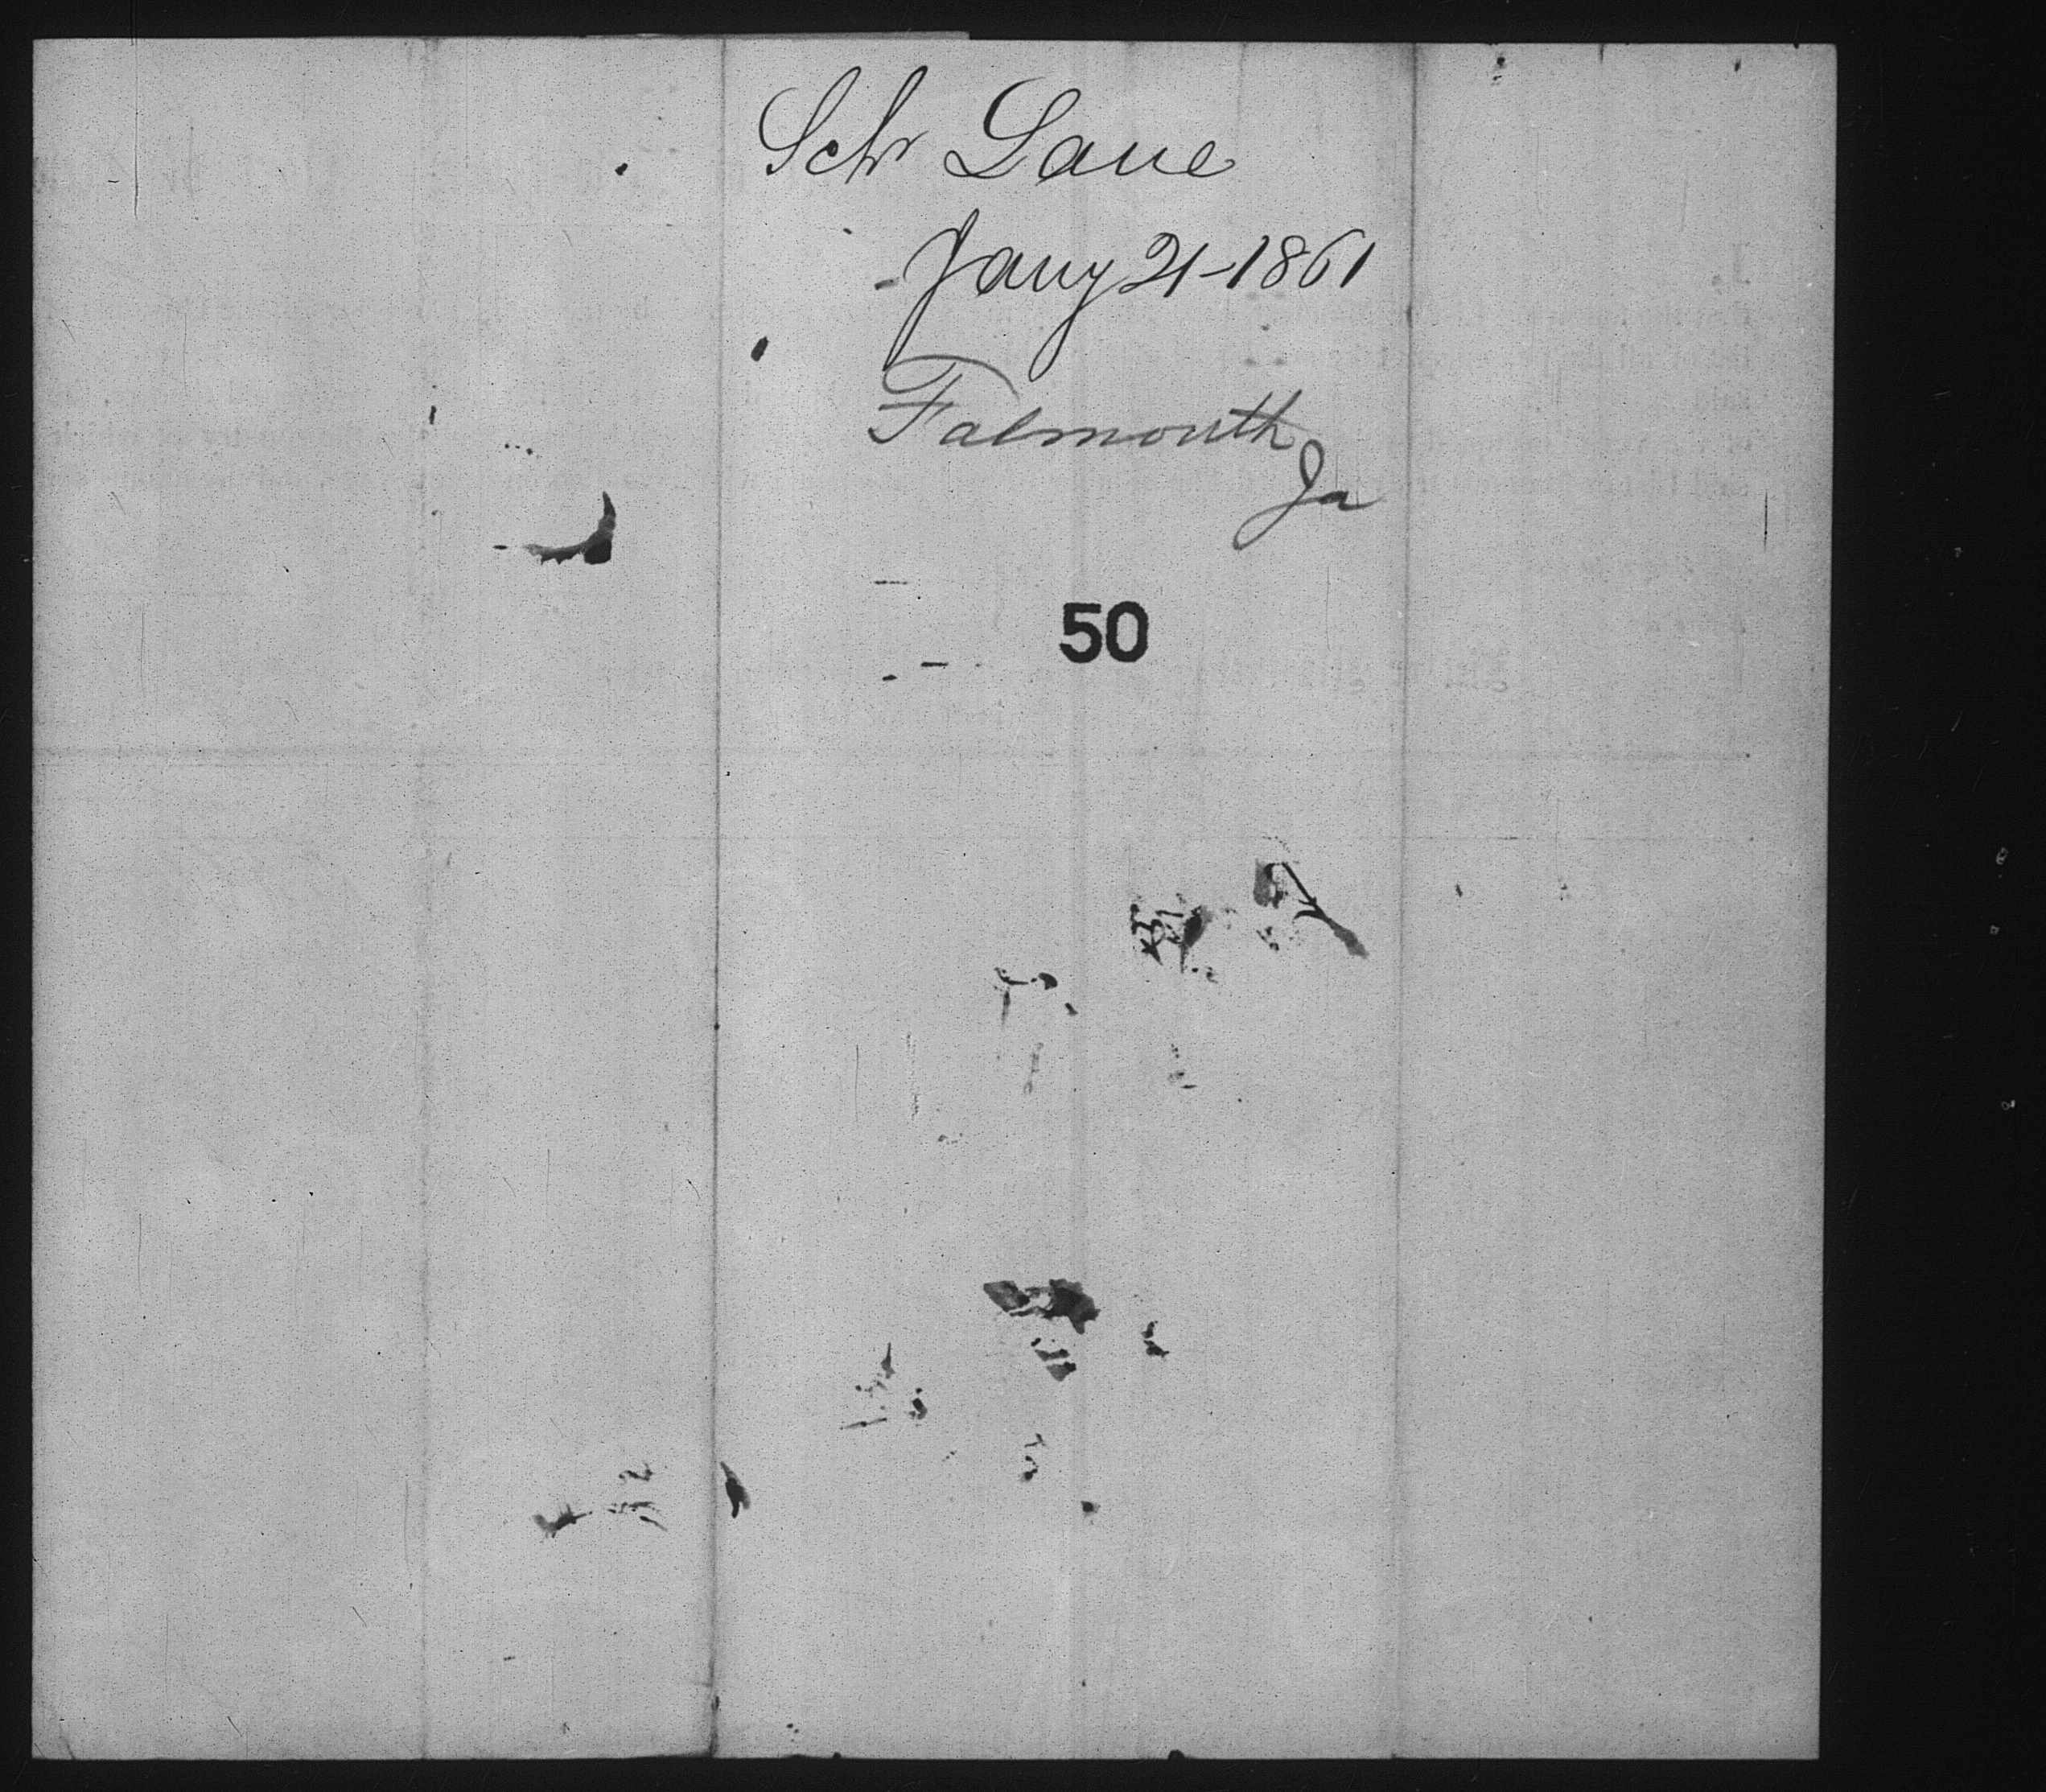 Schr Lane
Jany 21-1861
Falmouth
Ja
50